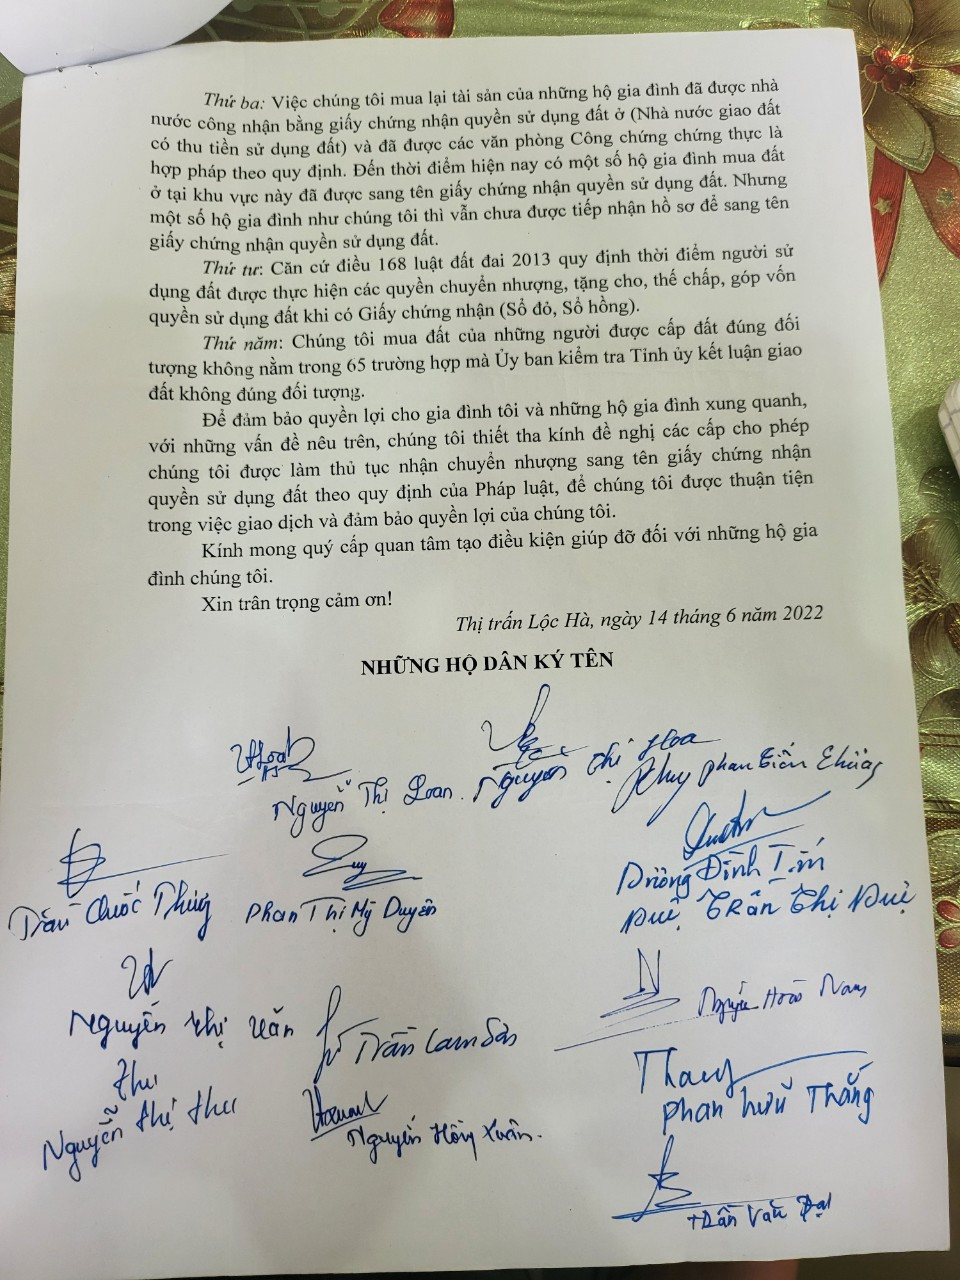 Thứ ba: Việc chúng tôi mua lại tài sản của những hộ gia đình đã được nhà
nước công nhận bằng giấy chứng nhận quyền sử dụng đất ở (Nhà nước giao đất
có thu tiền sử dụng đất) và đã được các văn phòng Công chứng chứng thực là
hợp pháp theo quy định. Đến thời điểm hiện nay có một số hộ gia đình mua đất
ở tại khu vực này đã được sang tên giấy chứng nhận quyền sử dụng đất. Nhưng
một số hộ gia đình như chúng tôi thì vẫn chưa được tiếp nhận hồ sơ để sang tên
giấy chứng nhận quyền sử dụng đất.
Thứ tư: Căn cứ điều 168 luật đất đai 2013 quy định thời điểm người sử
dụng đất được thực hiện các quyền chuyển nhượng, tặng cho, thế chấp, góp vốn
quyền sử dụng đất khi có Giấy chứng nhận (Sổ đỏ, Sổ hồng).
Thứ năm: Chúng tôi mua đất của những người được cấp đất đúng đối
tượng không nằm trong 65 trường hợp mà Ủy ban kiểm tra Tỉnh ủy kết luận giao
đất không đúng đối tượng.
Để đảm bảo quyền lợi cho gia đình tôi và những hộ gia đình xung quanh,
với những vấn đề nêu trên, chúng tôi thiết tha kính đề nghị các cấp cho phép
chúng tôi được làm thủ tục nhận chuyển nhượng sang tên giấy chứng nhận
quyền sử dụng đất theo quy định của Pháp luật, để chúng tôi được thuận tiện
trong việc giao dịch và đảm bảo quyền lợi của chúng tôi.
Kính mong quý cấp quan tâm tạo điều kiện giúp đỡ đối với những hộ gia
đình chúng tôi.
Xin trân trọng cảm ơn!
Thị trấn Lộc Hà, ngày 14 tháng 6 năm 2022
NHỮNG HỘ DÂN KÝ TÊN
Nguyễn Thị Loan
Nguyễn Thị Hoa
Phan Tiến
Trần Quốc
Phan Thị Mỹ Duyên
Dương Đình
Duệ Trần Thị Duệ
Nguyễn Thị Vân
Trần Lam Sơn
Nguyễn Hoài Nam
Thu
Nguyễn Thị Thu
Nguyễn Hồng Xuân.
Thang
Phan Hữu Thắng
Trần Văn Đại